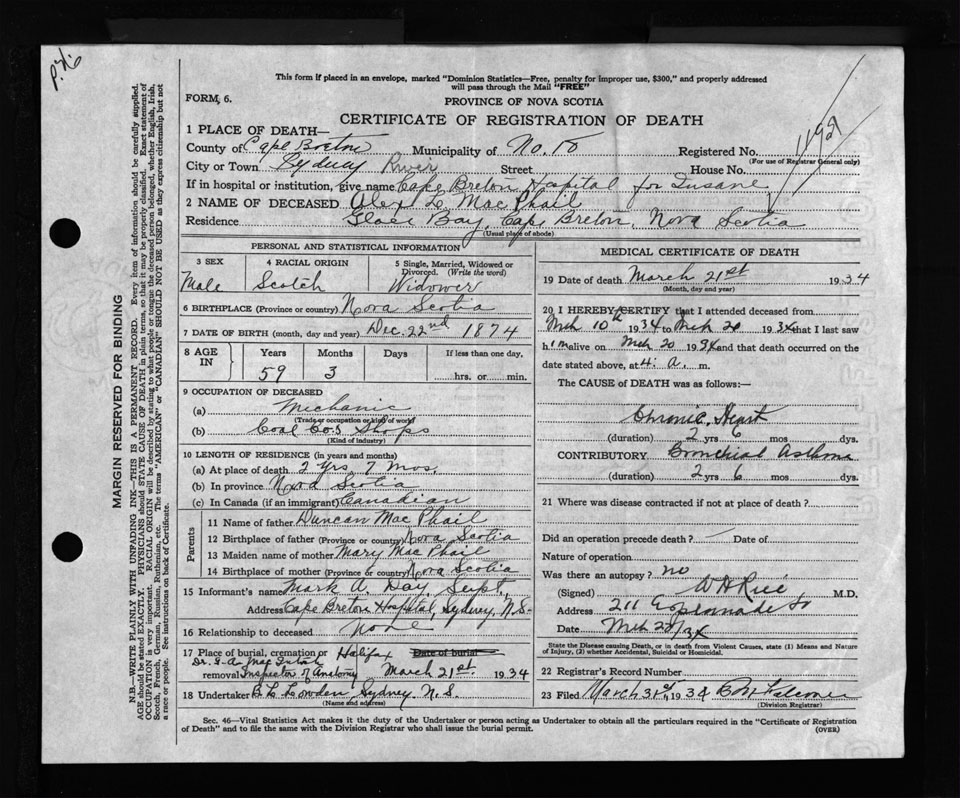 P. 76
This form if placed in an envelope, marked "Dominion Statistics—Free, penalty for improper use, $300," and properly addressed
will pass through the Mail "FREE"
FORM, 6.
PROVINCE OF NOVA SCOTIA
CERTIFICATE OF REGISTRATION OF DEATH
1 PLACE OF DEATH—
County of Cape Breton Municipality of No. 10 Registered No.
(For use of Registrar General only)
1921
City or Town Sydney River Street House No.
If in hospital or institution, give name Cape Breton Hospital for Insane
2 NAME OF DECEASED Alex L. MacPhail
Residence Glace Bay, Cape Breton, Nova Scotia
(Usual place of abode)
PERSONAL AND STATISTICAL INFORMATION
3 SEX 4 RACIAL ORIGIN 5 Single, Married, Widowed or
Divorced. (Write the word)
Male Scotch Widower
6 BIRTHPLACE (Province or country) Nova Scotia
7 DATE OF BIRTH (month, day and year) Dec. 22nd 1874
8 AGE IN Years Months Days If less than one day,
59 3 hrs. or min.
9 OCCUPATION OF DECEASED
(a) Mechanic
(Trade or occupation or kind of work)
(b) Coal Co's Shops
(Kind of industry)
10 LENGTH OF RESIDENCE (in years and months)
(a) At place of death 2 yrs 7 mos.
(b) In province Nova Scotia
(c) In Canada (if an immigrant) Canadian
Parents
11 Name of father Duncan MacPhail
12 Birthplace of father (Province or country) Nova Scotia
13 Maiden name of mother Mary MacPhail
14 Birthplace of mother (Province or country) Nova Scotia
15 Informant's name Mark A. Day, Supt.
Address Cape Breton Hospital, Sydney, N.S.
16 Relationship to deceased None
17 Place of burial, cremation or Halifax Date of burial
Dr. G. A. MacIntosh
removal Inspector of Anatomy March 21st. 1934
18 Undertaker B. L. Lowden Sydney N. S.
(Name and address)
MEDICAL CERTIFICATE OF DEATH
19 Date of death March 21st 1934
(Month, day and year)
20 I HEREBY CERTIFY that I attended deceased from
Mch 10th 1934 to Mch 20 1934 that I last saw
him alive on Mch 20 1934 and that death occurred on the
date stated above, at 4. a. m.
The CAUSE of DEATH was as follows:—
Chronic Heart
(duration) 2 yrs 6 mos dys.
CONTRIBUTORY Bronchial Asthma
(duration) 2 yrs 6 mos dys.
21 Where was disease contracted if not at place of death?
Did an operation precede death? — Date of
Nature of operation
Was there an autopsy? no
(Signed) W H Rice M.D.
Address 211 Esplanade St
Date Mch 22/34
State the Disease causing Death, or in death from Violent Causes, state (1) Means and Nature
of Injury, (2) whether Accidental, Suicidal or Homicidal.
22 Registrar's Record Number
23 Filed March 31st, 1934
(Division Registrar)
Sec. 46—Vital Statistics Act makes it the duty of the Undertaker or person acting as Undertaker to obtain all the particulars required in the "Certificate of Registration
of Death" and to file the same with the Division Registrar who shall issue the burial permit.
(OVER)
MARGIN RESERVED FOR BINDING
N.B.—WRITE PLAINLY WITH UNFADING INK—THIS IS A PERMANENT RECORD. Every item of information should be carefully supplied.
AGE should be stated EXACTLY. PHYSICIANS should STATE CAUSE OF DEATH in plain terms, so that it may be properly classified. Exact statement of
OCCUPATION is very important. RACIAL ORIGIN will be described by stating to what people or tongue the deceased person belonged, whether English, Irish,
Scotch, French, German, Russian, Ruthenian, etc. The terms "AMERICAN" or "CANADIAN" SHOULD NOT BE USED as they express citizenship but not
a race or people. See instructions on back of Certificate.